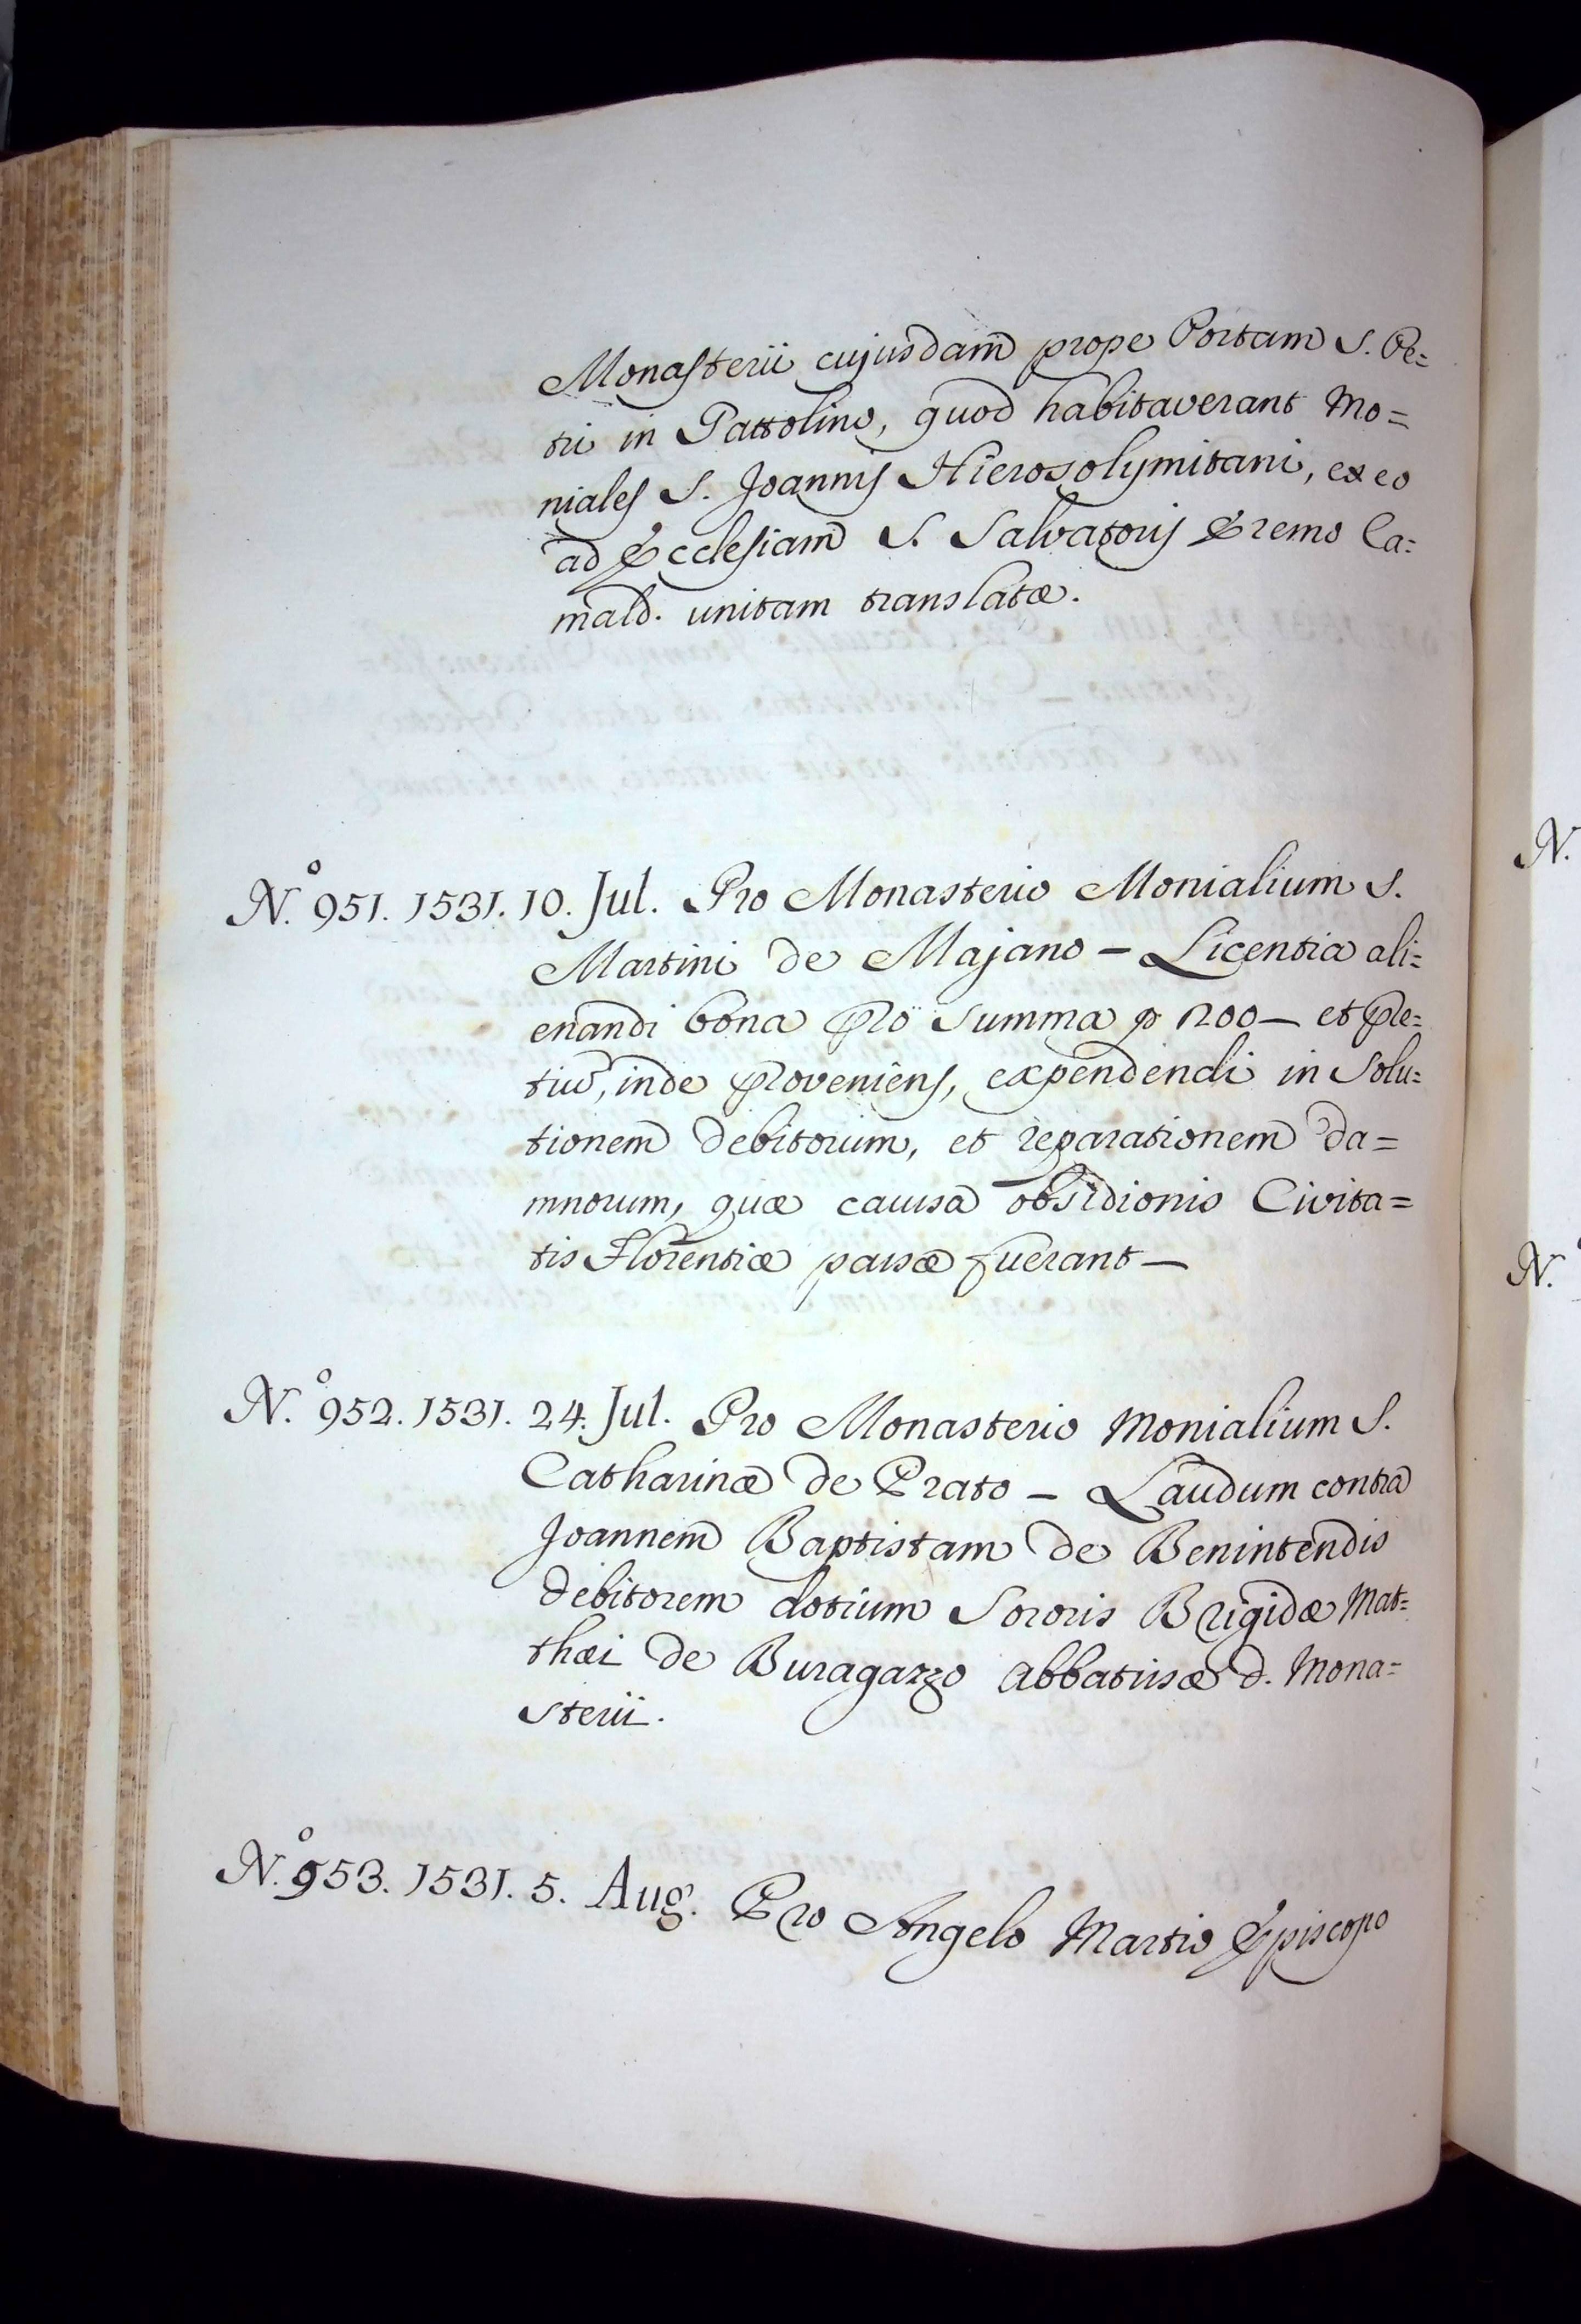 Monasterii cujusdam prope Portam S. Pe=
tri in Gattolino, quod habitaverant Mo=
niales S. Joannis Hierosolymitani, ex eo
ad Ecclesiam S. Salvatoris Eremo Ca=
mald. unitam translatæ.
N.º 951. 1531. 10. Jul. Pro Monasterio Monialium S.
Martini de Majano - Licentia ali=
enandi bona pro summa 1200 - et pre=
tium, inde proveniens, expendendi in solu=
tionem debitorum, et reparationem da=
mnorum, quæ causa obsidionis Civita=
tis Florentiæ passæ fuerant -
N.º 952. 1531. 24. Jul. Pro Monasterio Monialium S.
Catharinæ de Prato - Laudum contra
Joannem Baptistam de Benintendis
debitorem dotium Sororis Brigidæ Mat=
thæi de Buragazzo Abbatissæ d. Mona=
sterii.
N.º 953. 1531. 5. Aug. Pro Angelo Martio Episcopo
N.
N.